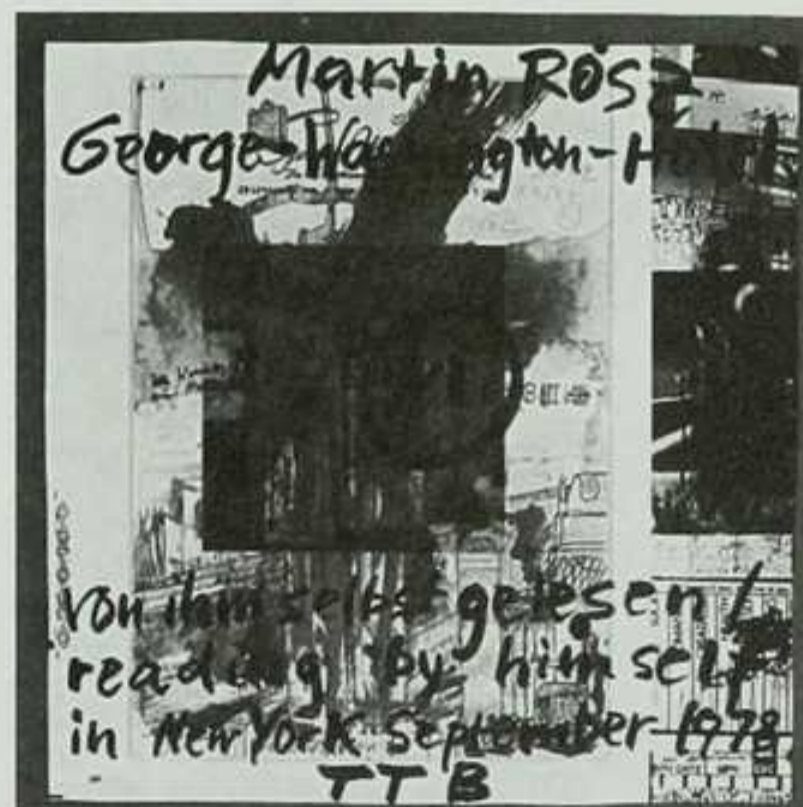 Martin Rösz
George-Washington-Hotel
von ihm selbst gelesen /
reading by himself
in New York September 1978
TTB